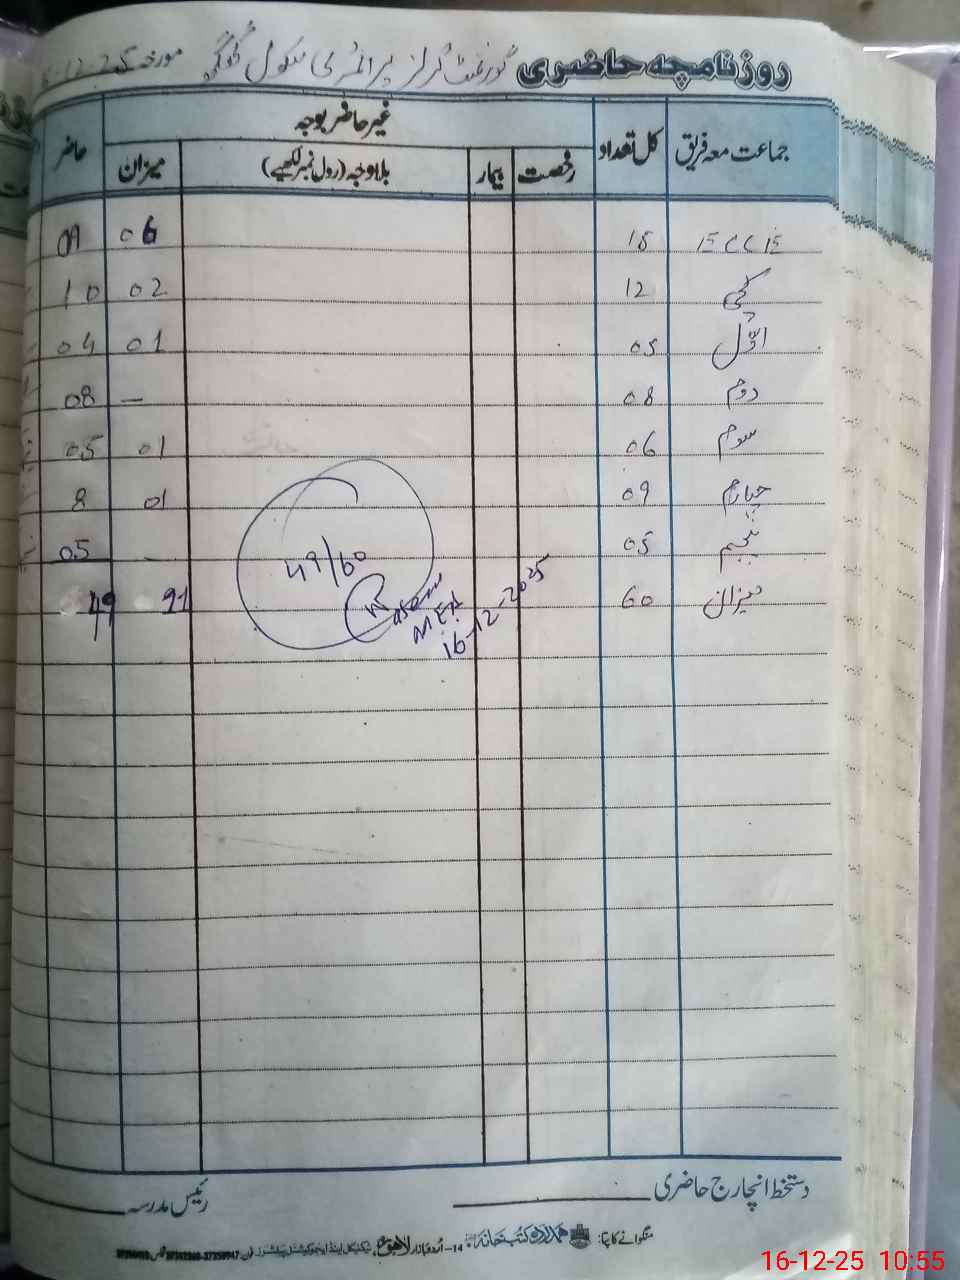 روزنامچہ حاضری گورنمنٹ گرلز پرائمری سکول مورخہ 16-12-25
جماعت معہ فریق کل تعداد غیر حاضر بوجہ حاضر
رخصت بیمار بلاوجہ (رول نمبر لکھیے) میزان
ECCE 15 06 09
کچی 12 02 10
اوّل 05 01 04
دوم 08 — 08
سوم 06 01 05
چہارم 09 01 8
پنجم 05 - 05
میزان 60 11 49
49/60
Waseem
MEA
16-12-2025
دستخط انچارج حاضری رئیس مدرسہ
منگوانے کا پتا: ہمدرد کتب خانہ
14-اُردو بازار لاہور
16-12-25 10:55